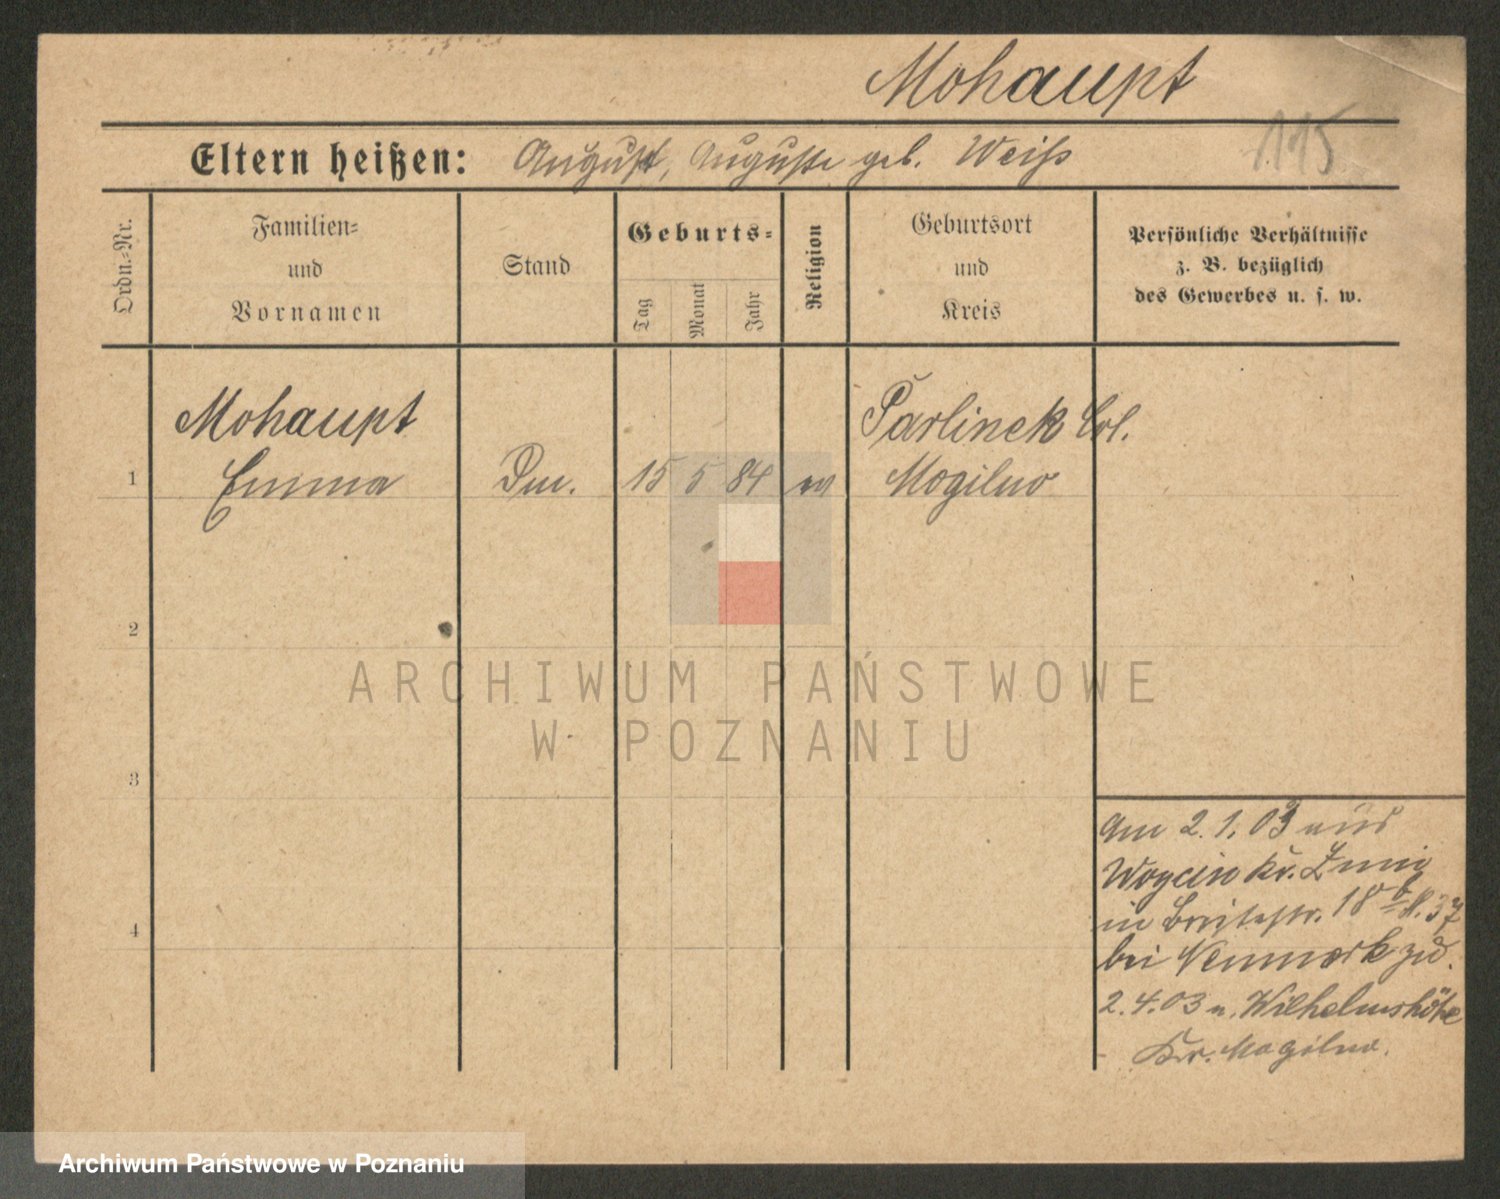 Mohaupt
115
Eltern heißen: August, Auguste geb. Weiß
Ordn.-Nr.
Familien-
und
Vornamen
Stand
Geburts-
Tag
Monat
Jahr
Religion
Geburtsort
und
Kreis
Persönliche Verhältnisse
z. B. bezüglich
des Gewerbes u. s. w.
Mohaupt
Parlinek Col.
1 Emma 15 5 84 Mogilno
2
3
4
Am 2.1.03 aus
Woycin Kr. Znin
in Breitestr. 18
bei zu.
2.4.03 n. Wilhelmshöhe
Kr. Mogilno.
ARCHIWUM PAŃSTWOWE
W POZNANIU
Archiwum Państwowe w Poznaniu